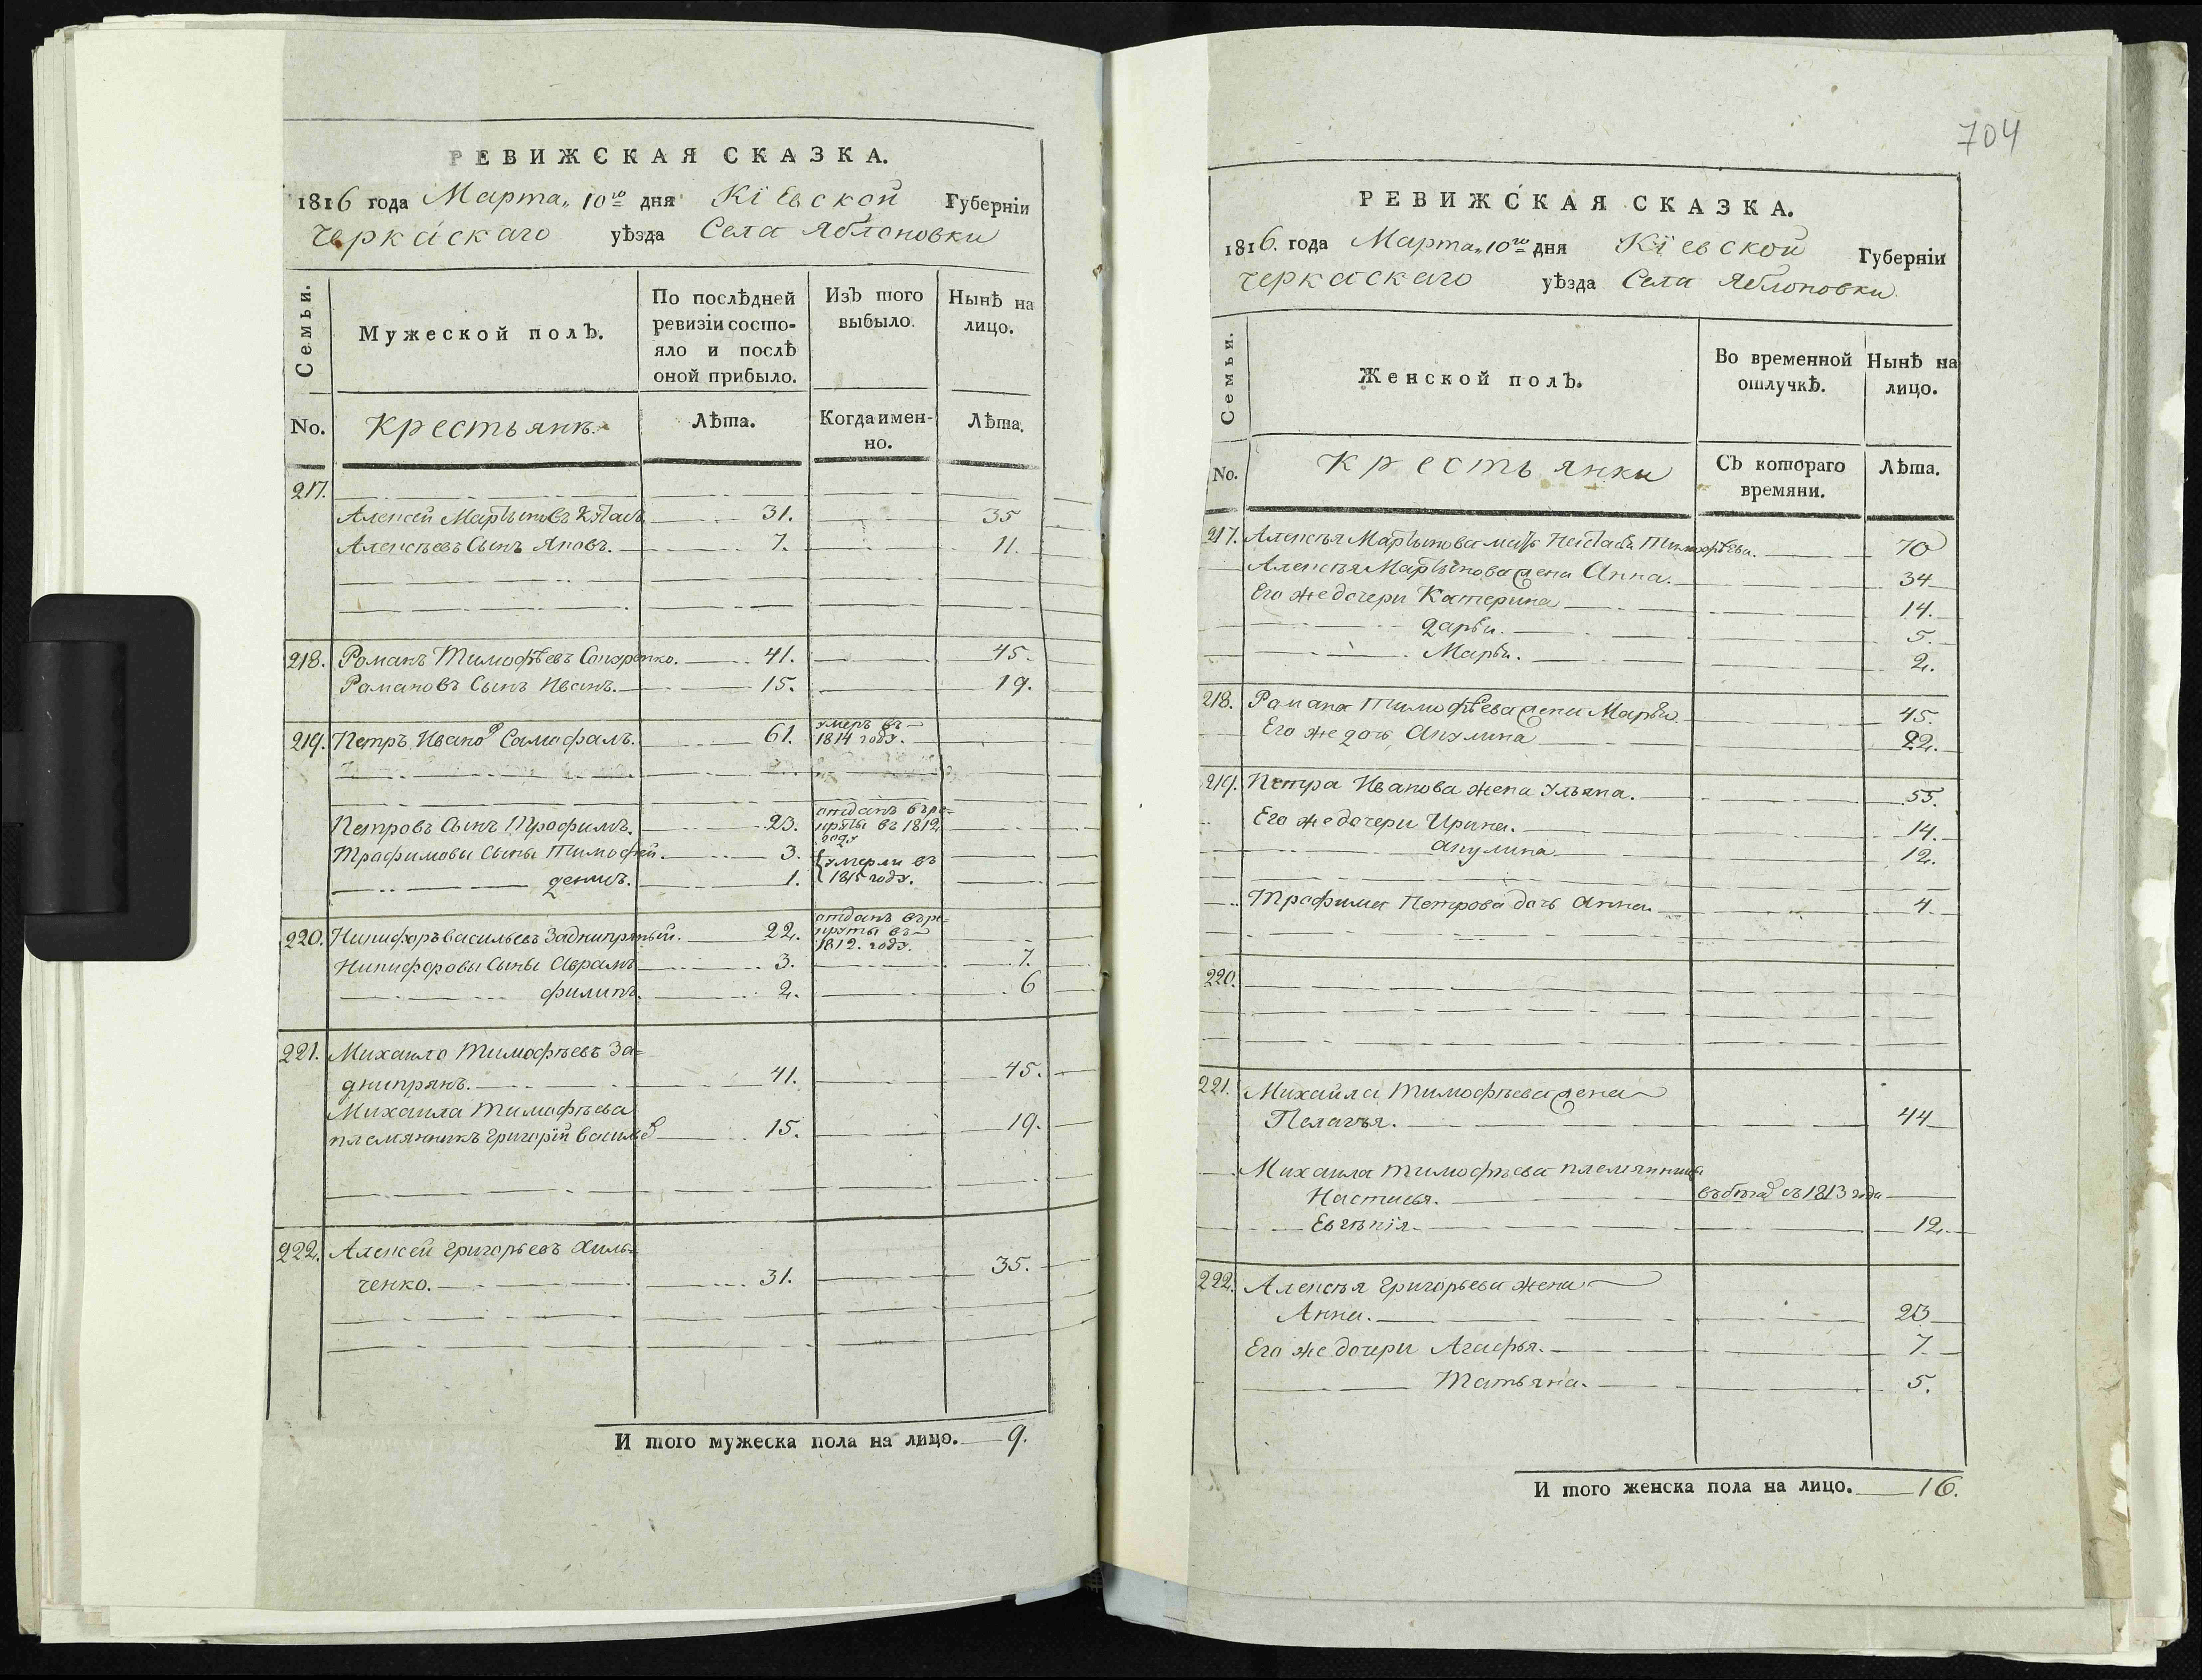 РЕВИЖСКАЯ СКАЗКА.
1816 года Марта „ 10го дня Кіевской Губерніи
Черкаскаго уѣзда Села Яблоновки
Семьи.
Мужеской полъ.
По послѣдней ревизіи состо-
яло и послѣ
оной прибыло.
Изъ того выбыло.
Нынѣ на лицо.
No.
Крестьянъ.
Лѣта.
Когда имен-
но.
Лѣта.
217.
Алексей Мартыновъ 31. 35
Алексѣевъ Сынъ Яковъ. 7. 11.
218. Романъ Тимофѣевъ 41. 45.
Романовъ Сынъ Иванъ. 15. 19.
219. Петръ Ивановъ Самофалъ. 61. умеръ въ
1814 году.
Петровъ Сынъ Трофимъ. 23. отданъ врѣ-
круты въ 1812
году
Трофимовы Сыны Тимофей. 3. умерли въ
денисъ. 1. 1815 году.
220. Никифоръ васильевъ Заднипряный. 22. отданъ врѣ-
круты въ
1812. году.
Никифоровы Сыны Аврамъ 3. 7.
филипъ. 2. 6
221. Михаило Тимофѣевъ За=
днипрянъ. 41. 45.
Михаила Тимофѣева
племянникъ Григорій васильевъ 15. 19.
222. Алексей Григорьевъ Хиль=
ченко. 31. 35.
И того мужеска пола на лицо. 9.
704
РЕВИЖСКАЯ СКАЗКА.
1816. года Марта „ 10го дня Кіевской Губерніи
Черкаскаго уѣзда Села Яблоновки
Семьи.
Женской полъ.
Во временной
отлучкѣ.
Нынѣ на
лицо.
No.
Крестьянки
Съ котораго
времяни.
Лѣта.
217. Алексѣя Мартынова мать Тимофѣева. 70
Алексѣя Мартынова жена Анна. 34
Его же дочери Катерина 14.
дарья. 5.
Марья. 2.
218. Романа Тимофѣева жена Марья 45.
Его же дочь Акулина 22.
219. Петра Иванова жена Ульяна. 55.
Его же дочери Ирина. 14.
Акулина 12.
Трофима Петрова дочь Анна. 4.
220.
221. Михайла Тимофѣева жена
Пелагья. 44
Михаила Тимофѣева племянницы
Настасья. въ бѣгахъ съ 1813 года
Евгѣнія 12.
222. Алексѣя Григорьева жена
Анна. 23
Его же дочери Агафья. 7.
Татьяна. 5.
И того женска пола на лицо. 16.